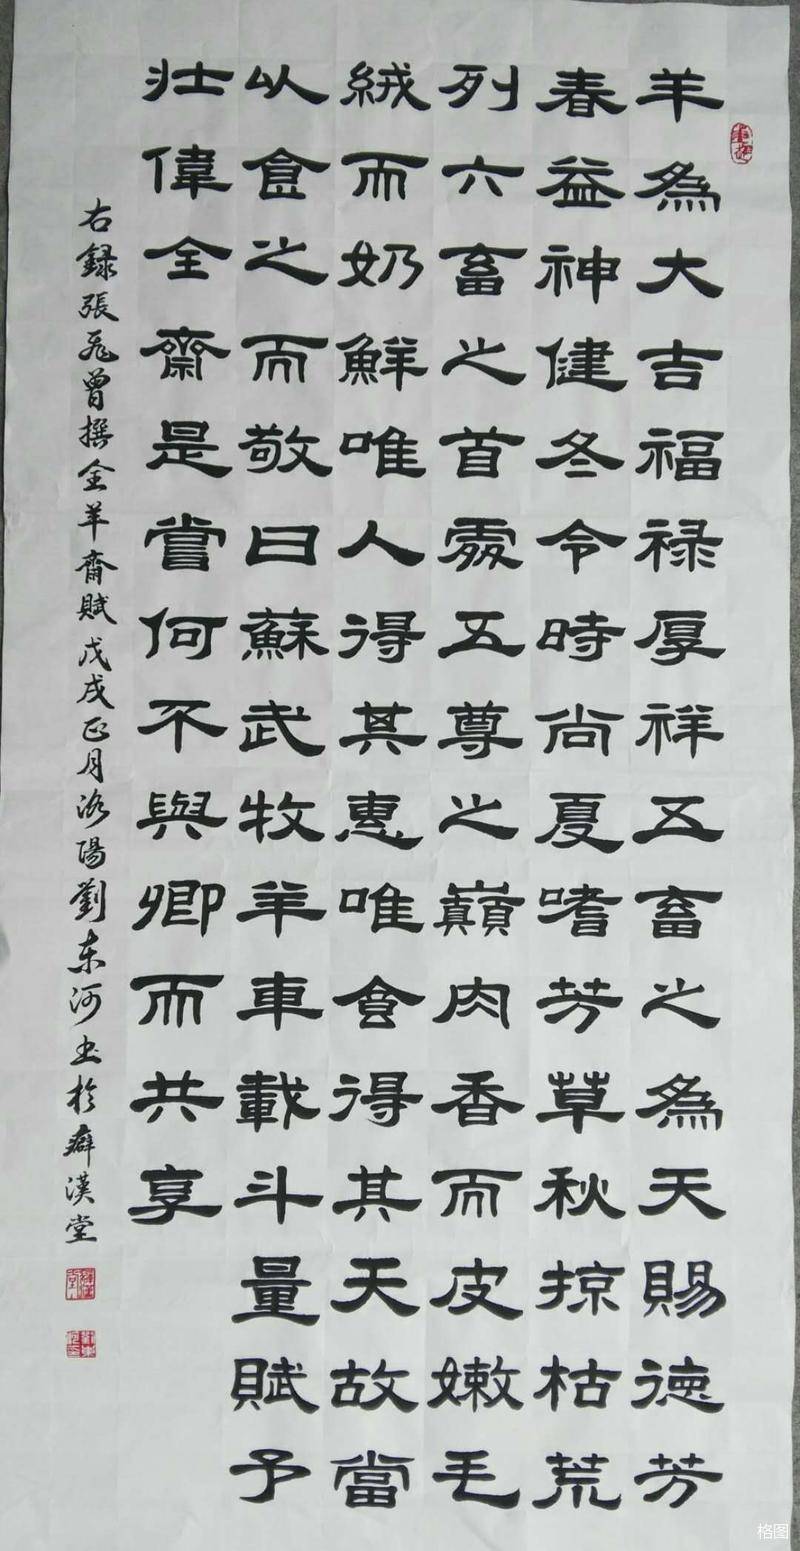 羊為大吉福禄厚祥五畜之為天賜德芳
春益神健冬令時尚夏嗜芳草秋掠枯荒
列六畜之首處五尊之巔肉香而皮嫩毛
絨而奶鮮唯人得其惠唯食得其天故當
以食之而敬曰蘇武牧羊車載斗量賦予
壯偉全齋是嘗何不與卿而共享
右録張飛曾撰全羊齋賦戊戌正月洛陽劉东河书於癖漢堂
格图